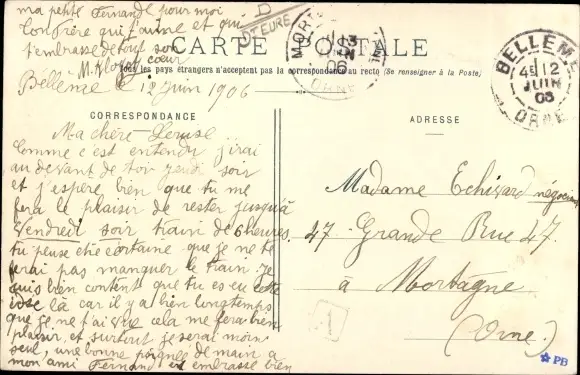 ma petite Fernande pour moi
qui t'aime et qui
t'embrasse de tout son
cœur
D
DT EURE
CARTE POSTALE
Tous les pays étrangers n'acceptent pas la correspondance au recto (Se renseigner à la Poste)
MORT
13
06
ORNE
BELLEME
12
JUIN
ORNE
Bellême le 12 Juin 1906
CORRESPONDANCE
ADRESSE
Ma chère
Comme c'est entendu j'irai
au devant de toi jeudi soir
et j'espère bien que tu me
fera le plaisir de rester jusqu'à
Vendredi soir train de 6 heures.
tu peus etre certaine que je ne te
ferai pas manquer le train. Je
suis bien content que tu es eu cette
là car il y a bien longtemps
que je ne t'ai vue cela me fera bien
plaisir, et surtout je serai moin
seul, une bonne poignée de main a
mon ami Fernand et embrasse bien
Madame Echivard négociant
47 Grande Rue 47
à Mortagne
(Orne)
1
PB